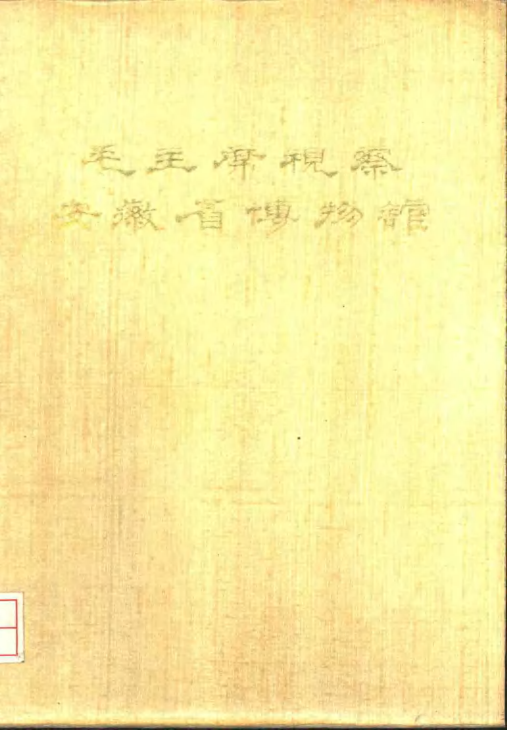 毛主席視察
安徽省博物館